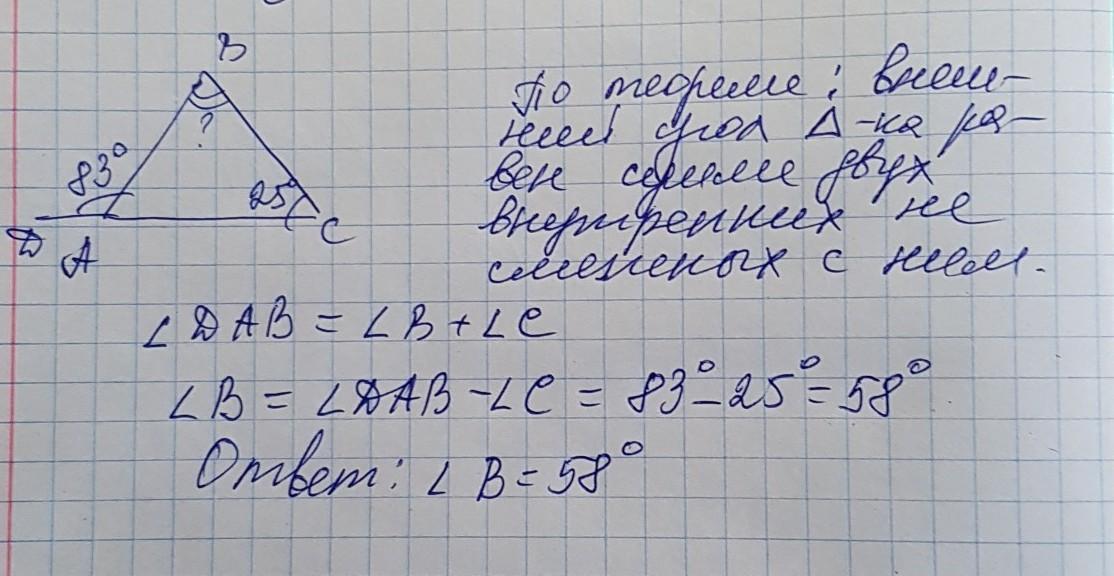 B
83°
?
25°
D
A
C
По теореме: внеш-
ний угол Δ-ка ра-
вен сумме двух
внутренних не
смежных с ним.
∠DAB = ∠B + ∠C
∠B = ∠DAB - ∠C = 83° - 25° = 58°
Ответ: ∠B = 58°